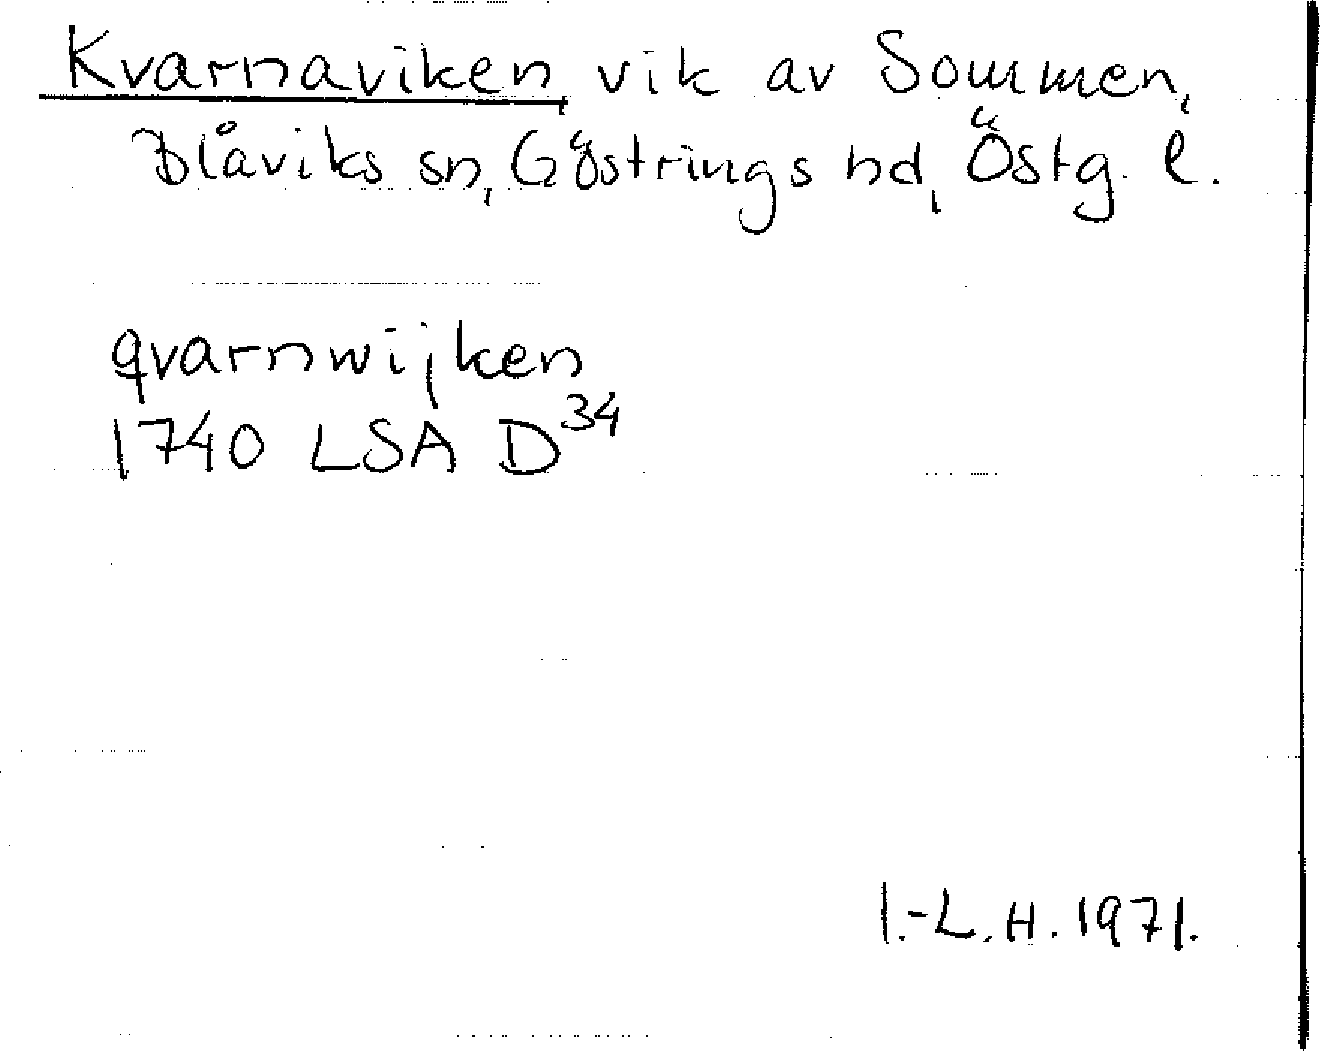 Kvarnaviken, vik av Sommen,
Blåviks sn, Göstrings hd, Östg. l.
qvarnwijken
1740 LSA D³⁴
I.-L. H. 1971.